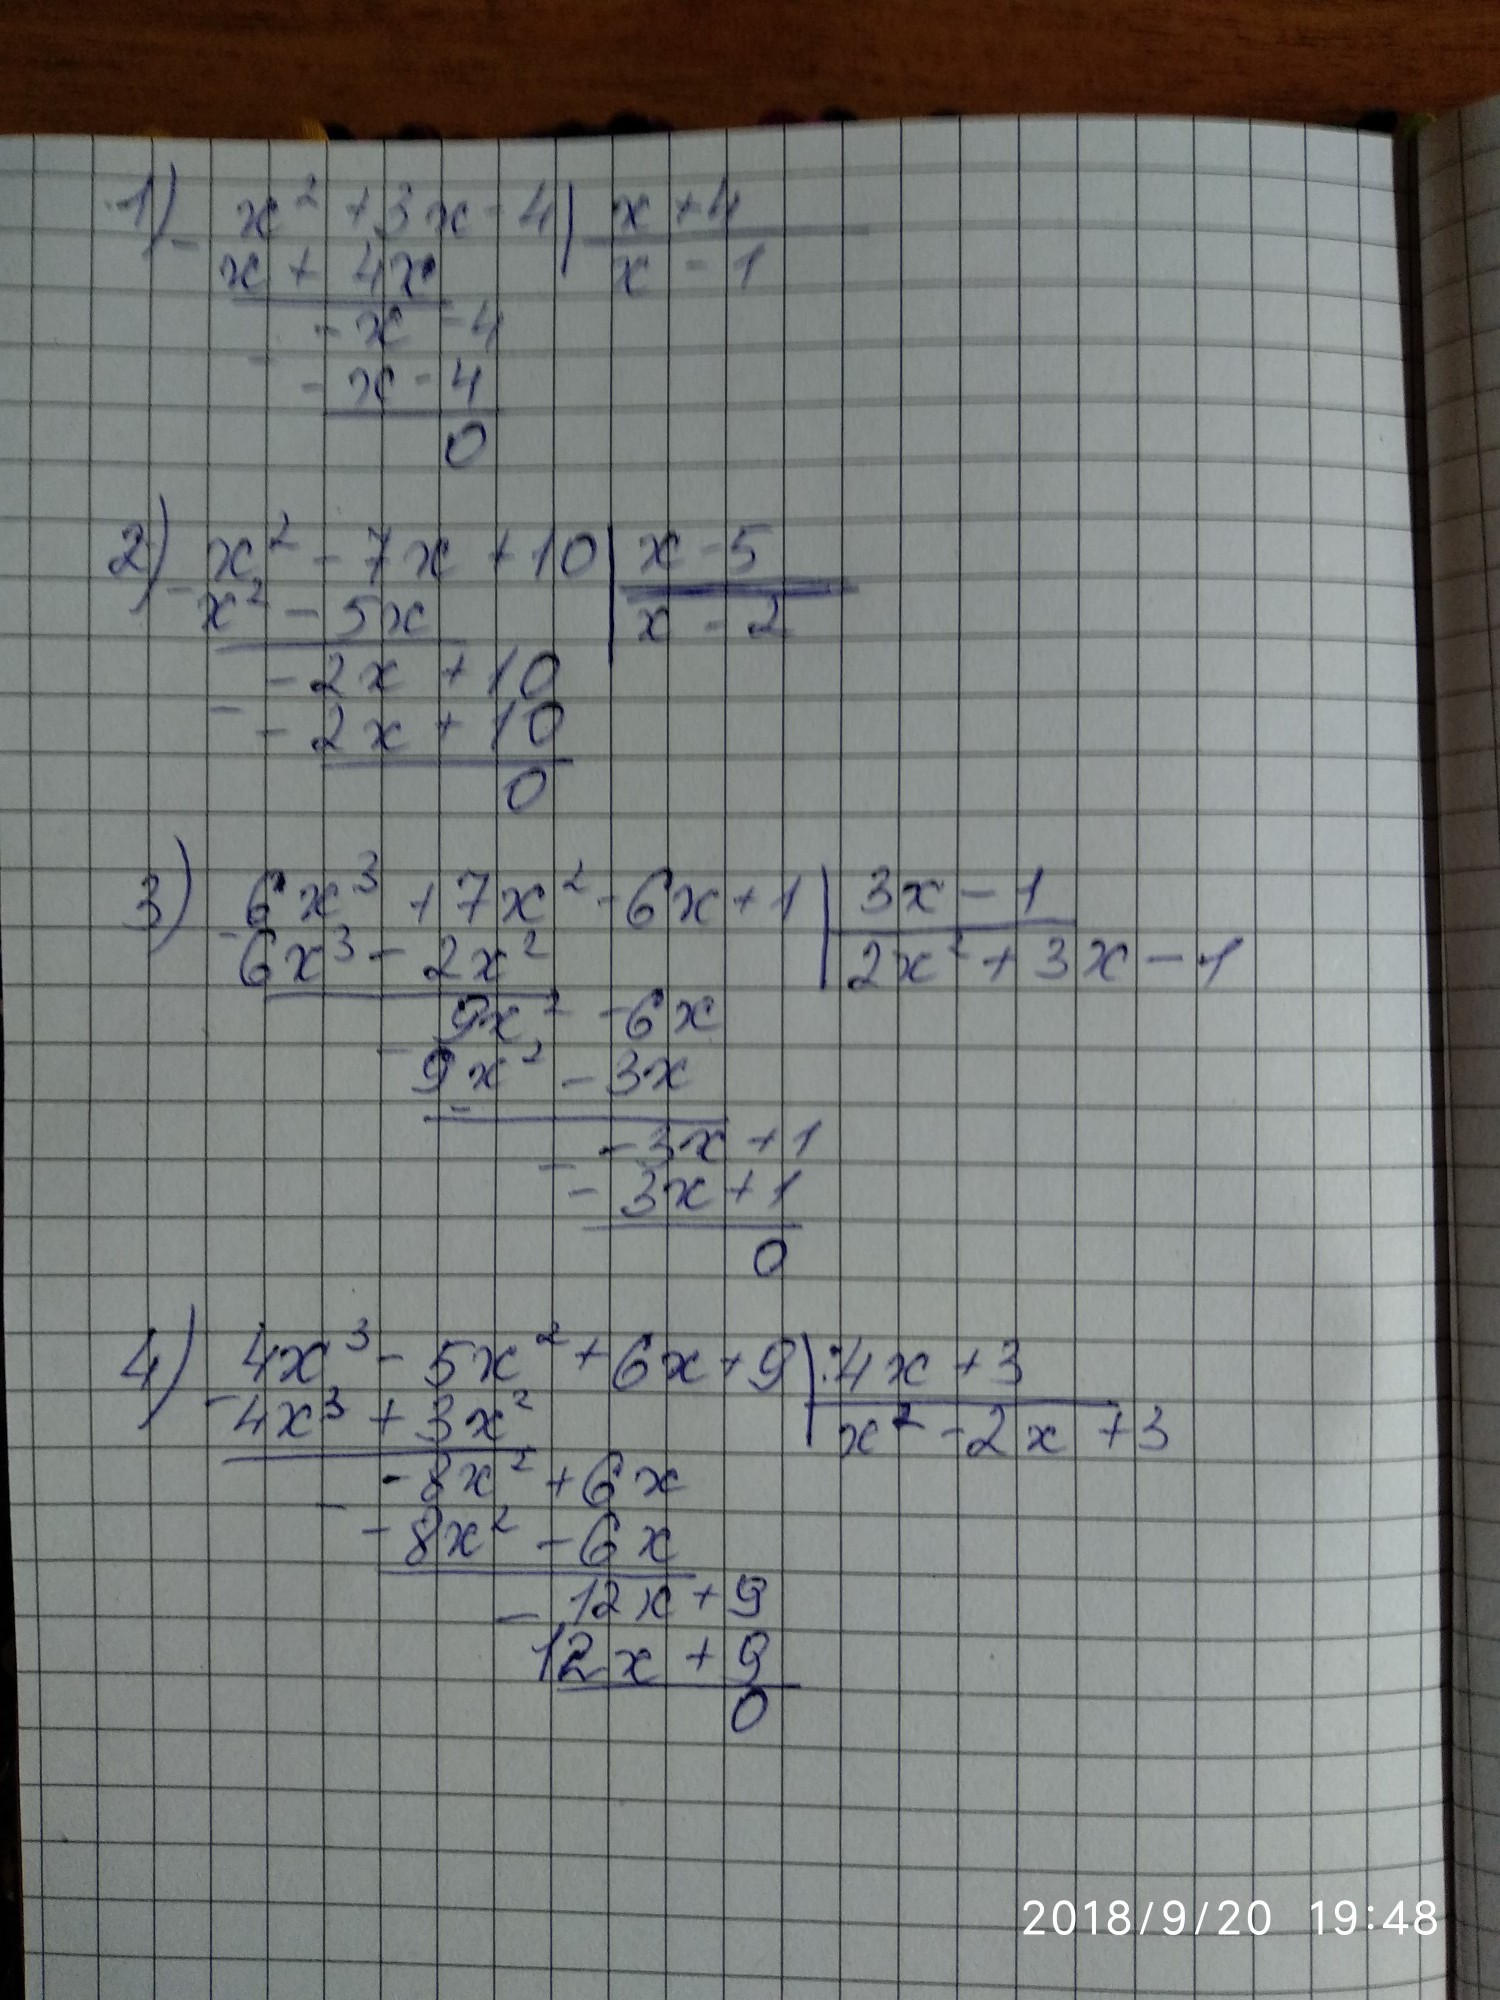 1) x² + 3x - 4 | x + 4
- x + 4x | x - 1
- x - 4
- - x - 4
0
2) x² - 7x + 10 | x - 5
- x² - 5x | x - 2
- 2x + 10
- - 2x + 10
0
3) 6x³ + 7x² - 6x + 1 | 3x - 1
- 6x³ - 2x² | 2x² + 3x - 1
9x² - 6x
- 9x² - 3x
- 3x + 1
- - 3x + 1
0
4) 4x³ - 5x² + 6x + 9 | 4x + 3
- 4x³ + 3x² | x² - 2x + 3
- 8x² + 6x
- - 8x² - 6x
12x + 9
- 12x + 9
0
2018/9/20 19:48